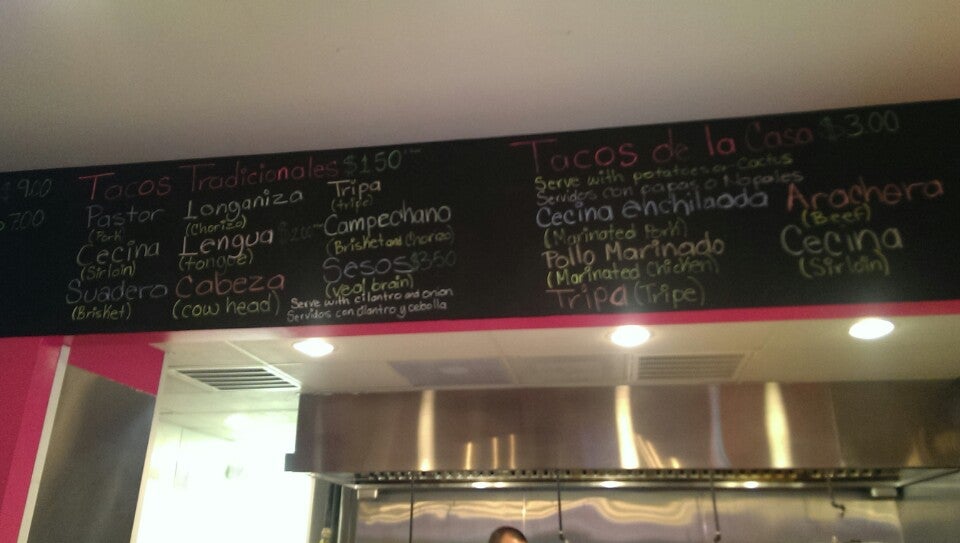 $9.00
7.00
Tacos Tradicionales $1.50
Pastor
(Pork)
Cecina
(Sirloin)
Suadero
(Brisket)
Longaniza
(Chorizo)
Lengua $2.00
(tongue)
Cabeza
(cow head)
Tripa
(tripe)
Campechano
(Brisket and Chorizo)
Sesos $3.50
(veal brain)
Serve with cilantro and onion
Servidos con cilantro y cebolla
Tacos de la Casa $3.00
Serve with potatoes or Cactus
Servidos con papas o Nopales
Cecina enchilada
(Marinated Pork)
Pollo Marinado
(Marinated Chicken)
Tripa (Tripe)
Arachera
(Beef)
Cecina
(Sirloin)